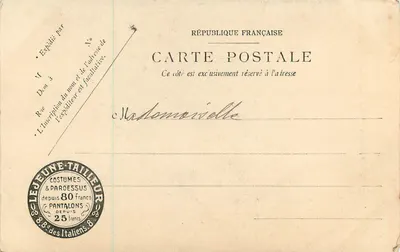 RÉPUBLIQUE FRANÇAISE
CARTE POSTALE
Ce côté est exclusivement réservé à l'adresse
* Expédié par
M
Dem^t à
Rue N^o
* L'Inscription du nom et de l'adresse de
l'expéditeur est facultative.
Mademoiselle
LEJEUNE-TAILLEUR
COSTUMES
& PARDESSUS
depuis 80 francs
PANTALONS
DEPUIS
25 francs
8, B^d des Italiens, 8